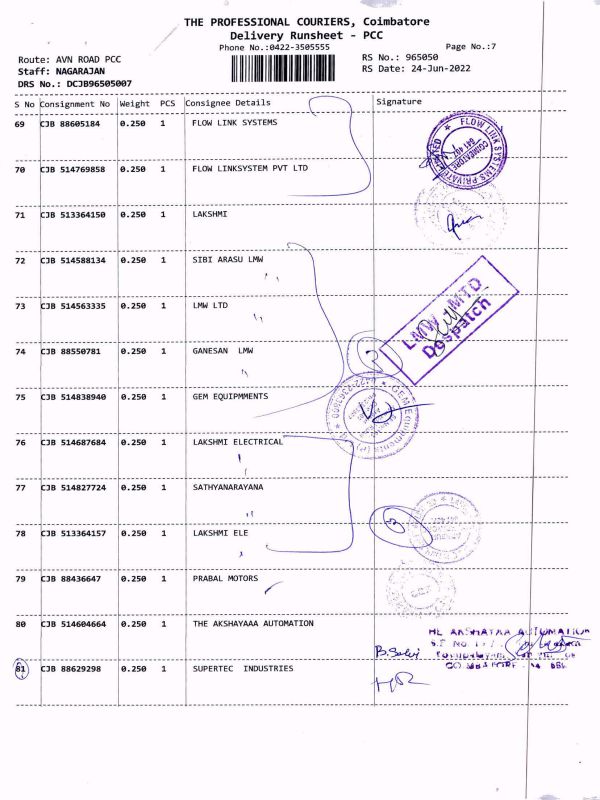 THE PROFESSIONAL COURIERS, Coimbatore
Delivery Runsheet - PCC
Phone No.:0422-3505555
Page No.:7
Route: AVN ROAD PCC
RS No.: 965050
Staff: NAGARAJAN
RS Date: 24-Jun-2022
DRS No.: DCJB96505007
S No Consignment No Weight PCS Consignee Details Signature
69 CJB 88605184 0.250 1 FLOW LINK SYSTEMS
FLOW LINK SYSTEMS PRIVATE LIMITED
COIMBATORE
70 CJB 514769858 0.250 1 FLOW LINKSYSTEM PVT LTD
71 CJB 513364150 0.250 1 LAKSHMI
72 CJB 514588134 0.250 1 SIBI ARASU LMW
73 CJB 514563335 0.250 1 LMW LTD
LMW LMTD
Despatch
74 CJB 88550781 0.250 1 GANESAN LMW
3
75 CJB 514838940 0.250 1 GEM EQUIPMMENTS
GEM Equipments (P)
76 CJB 514687684 0.250 1 LAKSHMI ELECTRICAL
77 CJB 514827724 0.250 1 SATHYANARAYANA
78 CJB 513364157 0.250 1 LAKSHMI ELE
3
79 CJB 88436647 0.250 1 PRABAL MOTORS
80 CJB 514604664 0.250 1 THE AKSHAYAAA AUTOMATION
AUTOMATION
B. Selvi
81 CJB 88629298 0.250 1 SUPERTEC INDUSTRIES